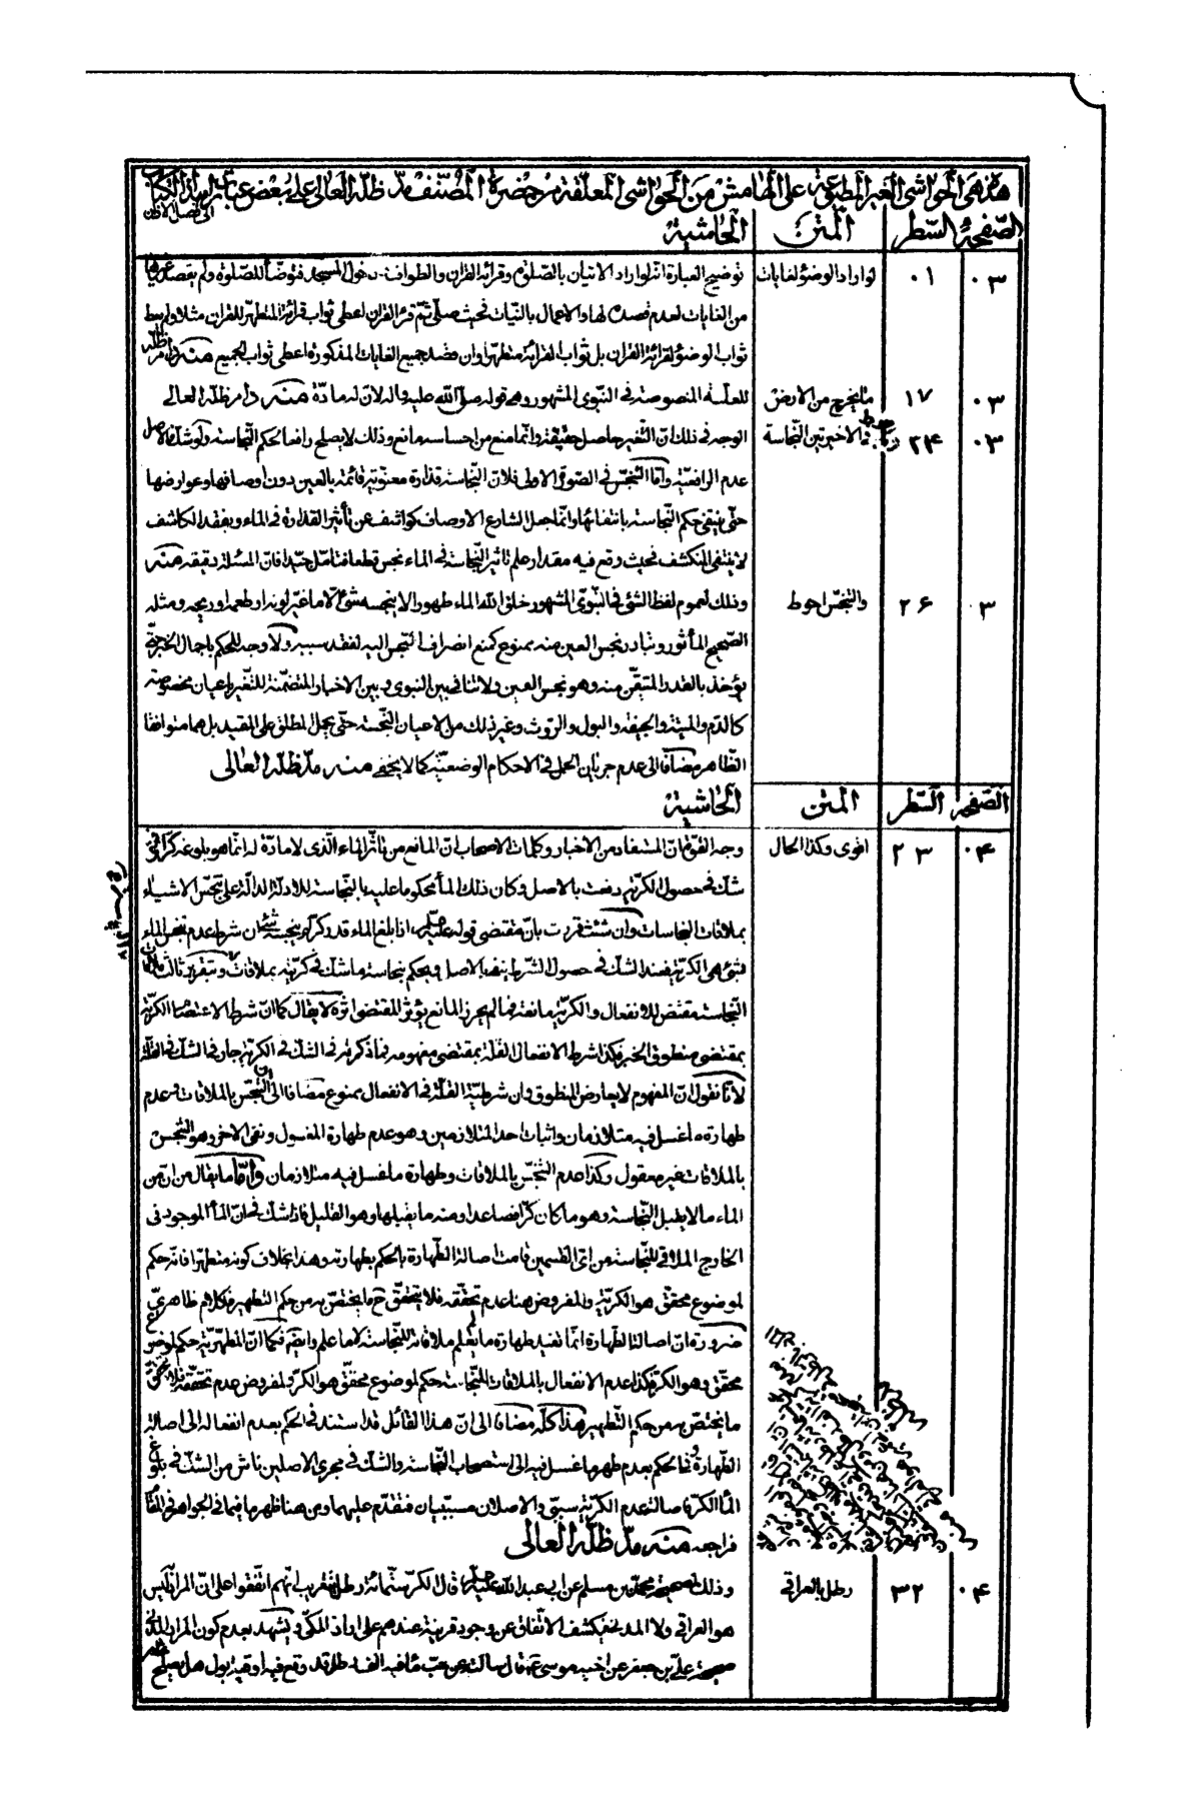 هذه هی الحواشی الغیر المطبوعة علی الهامش من الحواشی المعلقة من حضرة المصنف مد ظله العالی علی بعض عبائر هذا الکتاب
الی فصل الاذان
الصّفحة السّطر المتن الحاشیة
۰۳ ۰۱ لو اراد الوضوء لغایات توضیح العبارة انه لو اراد الاتیان بالصّلوة و قرائة القران و الطواف و دخول المسجد فتوضّأ للصّلوة و لم یقصد غیرها
من الغایات لعدم قصده لها و الاعمال بالنیّات فحیث صلّی ثمّ قرء القران اعطی ثواب قرائة المتطهّر للقران مثلا و لم یعط
ثواب الوضوء لقرائة القران بل ثواب القرائة متطهّرا و ان قصد جمیع الغایات المذکورة اعطی ثواب الجمیع منه دام ظله
۰۳ ۱۷ ما یخرج من الارض للعلّة المنصوصة فی النّبوی المشهور و هی قوله صلّی اللّه علیه و اله لانّ له مادّة منه دام ظله العالی
۰۳ ۲۴ فی الاخیرتین النّجاسة الوجه فی ذلک انّ التّغیر حاصل حقیقة و انّما منع من احساسه مانع و ذلک لا یصلح رافعا لحکم النّجاسة و لو شکّ فالاصل
عدم الرافعیّة و امّا التنجّس فی الصّورة الاولی فلانّ النّجاسة قذارة معنویّة قائمة بالعین دون اوصافها و عوارضها
حتّی ینتفی حکم النّجاسة بانتفائها و انّما جعل الشارع الاوصاف کواشف عن تأثیر القذارة فی الماء و بفقد الکاشف
لا ینتفی المنکشف فحیث وقع فیه مقدار علم تاثیر النّجاسة فی الماء نجس قطعا فتامّل جیّدا فانّ المسئلة دقیقة منه
۳ ۲۶ و التنجّس احوط و ذلک لعموم لفظ الشئ فی النّبوی المشهور خلق اللّه الماء طهورا لا ینجسه شئ الّا ما غیّر لونه او طعمه او ریحه و مثله
الصّحیح المأثور و تبادر نجس العین منه ممنوع کمنع انصراف المتنجس الیه لفقد سببه و لا وجه للحکم باجمال الخبر حتّی
یؤخذ بالقدر المتیقّن منه و هو نجس العین و لا تنافی بین النبوی و بین الاخبار المتضمّنة للتّغیر باعیان مخصوصة
کالدّم و المیتة و الجیفة و البول و الرّوث و غیر ذلک من الاعیان النّجسة حتّی یحمل المطلق علی المقید بل هما متوافقا
الظّاهر مضافا الی عدم جریان الحمل فی الاحکام الوضعیّة کما لا یخفی منه مدّ ظلّه العالی
الصّفحة السّطر المتن الحاشیة
۰۴ ۲۳ اقوی و کذا الحال وجه القوّة انّ المستفاد من الاخبار و کلمات الاصحاب انّ المانع من تاثّر الماء الّذی لا مادّة له انّما هو بلوغه کرّا فمتی
شکّ فی حصول الکریّة دفعت بالاصل و کان ذلک الماء محکوما علیه بالنّجاسة للادلّة الدالّة علی تنجّس الاشیاء
بملاقات النجاسات و ان شئت قررت بانّ مقتضی قوله علیه السلام اذا بلغ الماء قدر کرّ لم ینجسه شئ ان شرط عدم تنجس الماء
بشئ هی الکریّة فعند الشکّ فی حصول الشّرط ینفی بالاصل و یحکم بنجاسة ما شکّ فی کریّته بملاقات و بتقریر ثالث ملاقات
النّجاسة مقتض للانفعال و الکریّة مانعة فما لم یحرز المانع یؤثر المقتضی اثره لا یقال کما انّ شرط الاعتصام الکریّة
بمقتضی منطوق الخبر فکذا شرط الانفعال القلّة بمقتضی مفهومه فما ذکرته فی الشکّ فی الکریّة جار فی الشکّ فی القلّة
لانّا نقول انّ المفهوم لا یعارض المنطوق و ان شرطیّة القلّة فی الانفعال ممنوع مضافا الی انّ التنجّس بالملاقات و عدم
طهارة ما غسل فیه متلازمان و اثبات احد المتلازمین و هو عدم طهارة المغسول و نفی الاخر و هو التنجّس
بالملاقات غیر معقول و کذا عدم التنجّس بالملاقات و طهارة ما غسل فیه متلازمان و امّا ما یقال من انّ من
الماء ما لا یقبل النّجاسة و هو ما کان کرّا فصاعدا و منه ما یقبلها و هو القلیل فاذا شکّ فی انّ الماء الموجود فی
الخارج الملاقی للنّجاسة من ای القسمین قامت اصالة الطّهارة بالحکم بطهارته و هذا بخلاف کونه مطهّرا فانّه حکم
لموضوع محقّق هو الکریّة و المفروض هنا عدم تحقّقه فلا یتحقّق ح ما یختصّ به من حکم التطهیر فکلام ظاهری
ضرورة انّ اصالة الطّهارة انّما تفید طهارة ما لم یعلم ملاقاته للنّجاسة لا ما علم و ایضا فکما انّ المطهّریّة حکم لموضوع
محقّق و هو الکر فکذا عدم الانفعال بالملاقات للنّجاسة حکم لموضوع محقّق هو الکرّ و المفروض عدم تحقّقه فلا یتحقّق
ما یختصّ به من حکم التّطهیر هذا کلّه مضافا الی انّ هذا القائل قد استند فی الحکم بعدم انفعاله الی اصالة
الطّهارة و فی الحکم بعدم طهر ما غسل فیه الی استصحاب النّجاسة و الشکّ فی مجری الاصلین ناش من الشکّ فی بلوغ
الماء الکرّ فاصالة عدم الکریّة سببیّ و الاصلان مسبّبیان فتقدّم علیهما و من هنا ظهر ما فیما فی الجواهر فی المقام
فراجعه منه مدّ ظلّه العالی
۰۴ ۳۲ رطل بالعراقی و ذلک لصحیحة محمّد بن مسلم عن ابی عبد اللّه علیه السلام قال الکرّ ستّمائة رطل بتقریب انّهم اتّفقوا علی انّ المراد لیس
هو العراقی و لا المدنی فیکشف الاتّفاق عن وجود قرینة عندهم علی ارادة المکّی و یشهد بعدم کون المراد المدنی
صحیحة علیّ بن جعفر عن اخیه موسی ع قال سالته عن جبّ ماء فیه الف رطل وقع فیه اوقیة بول هل یصلح